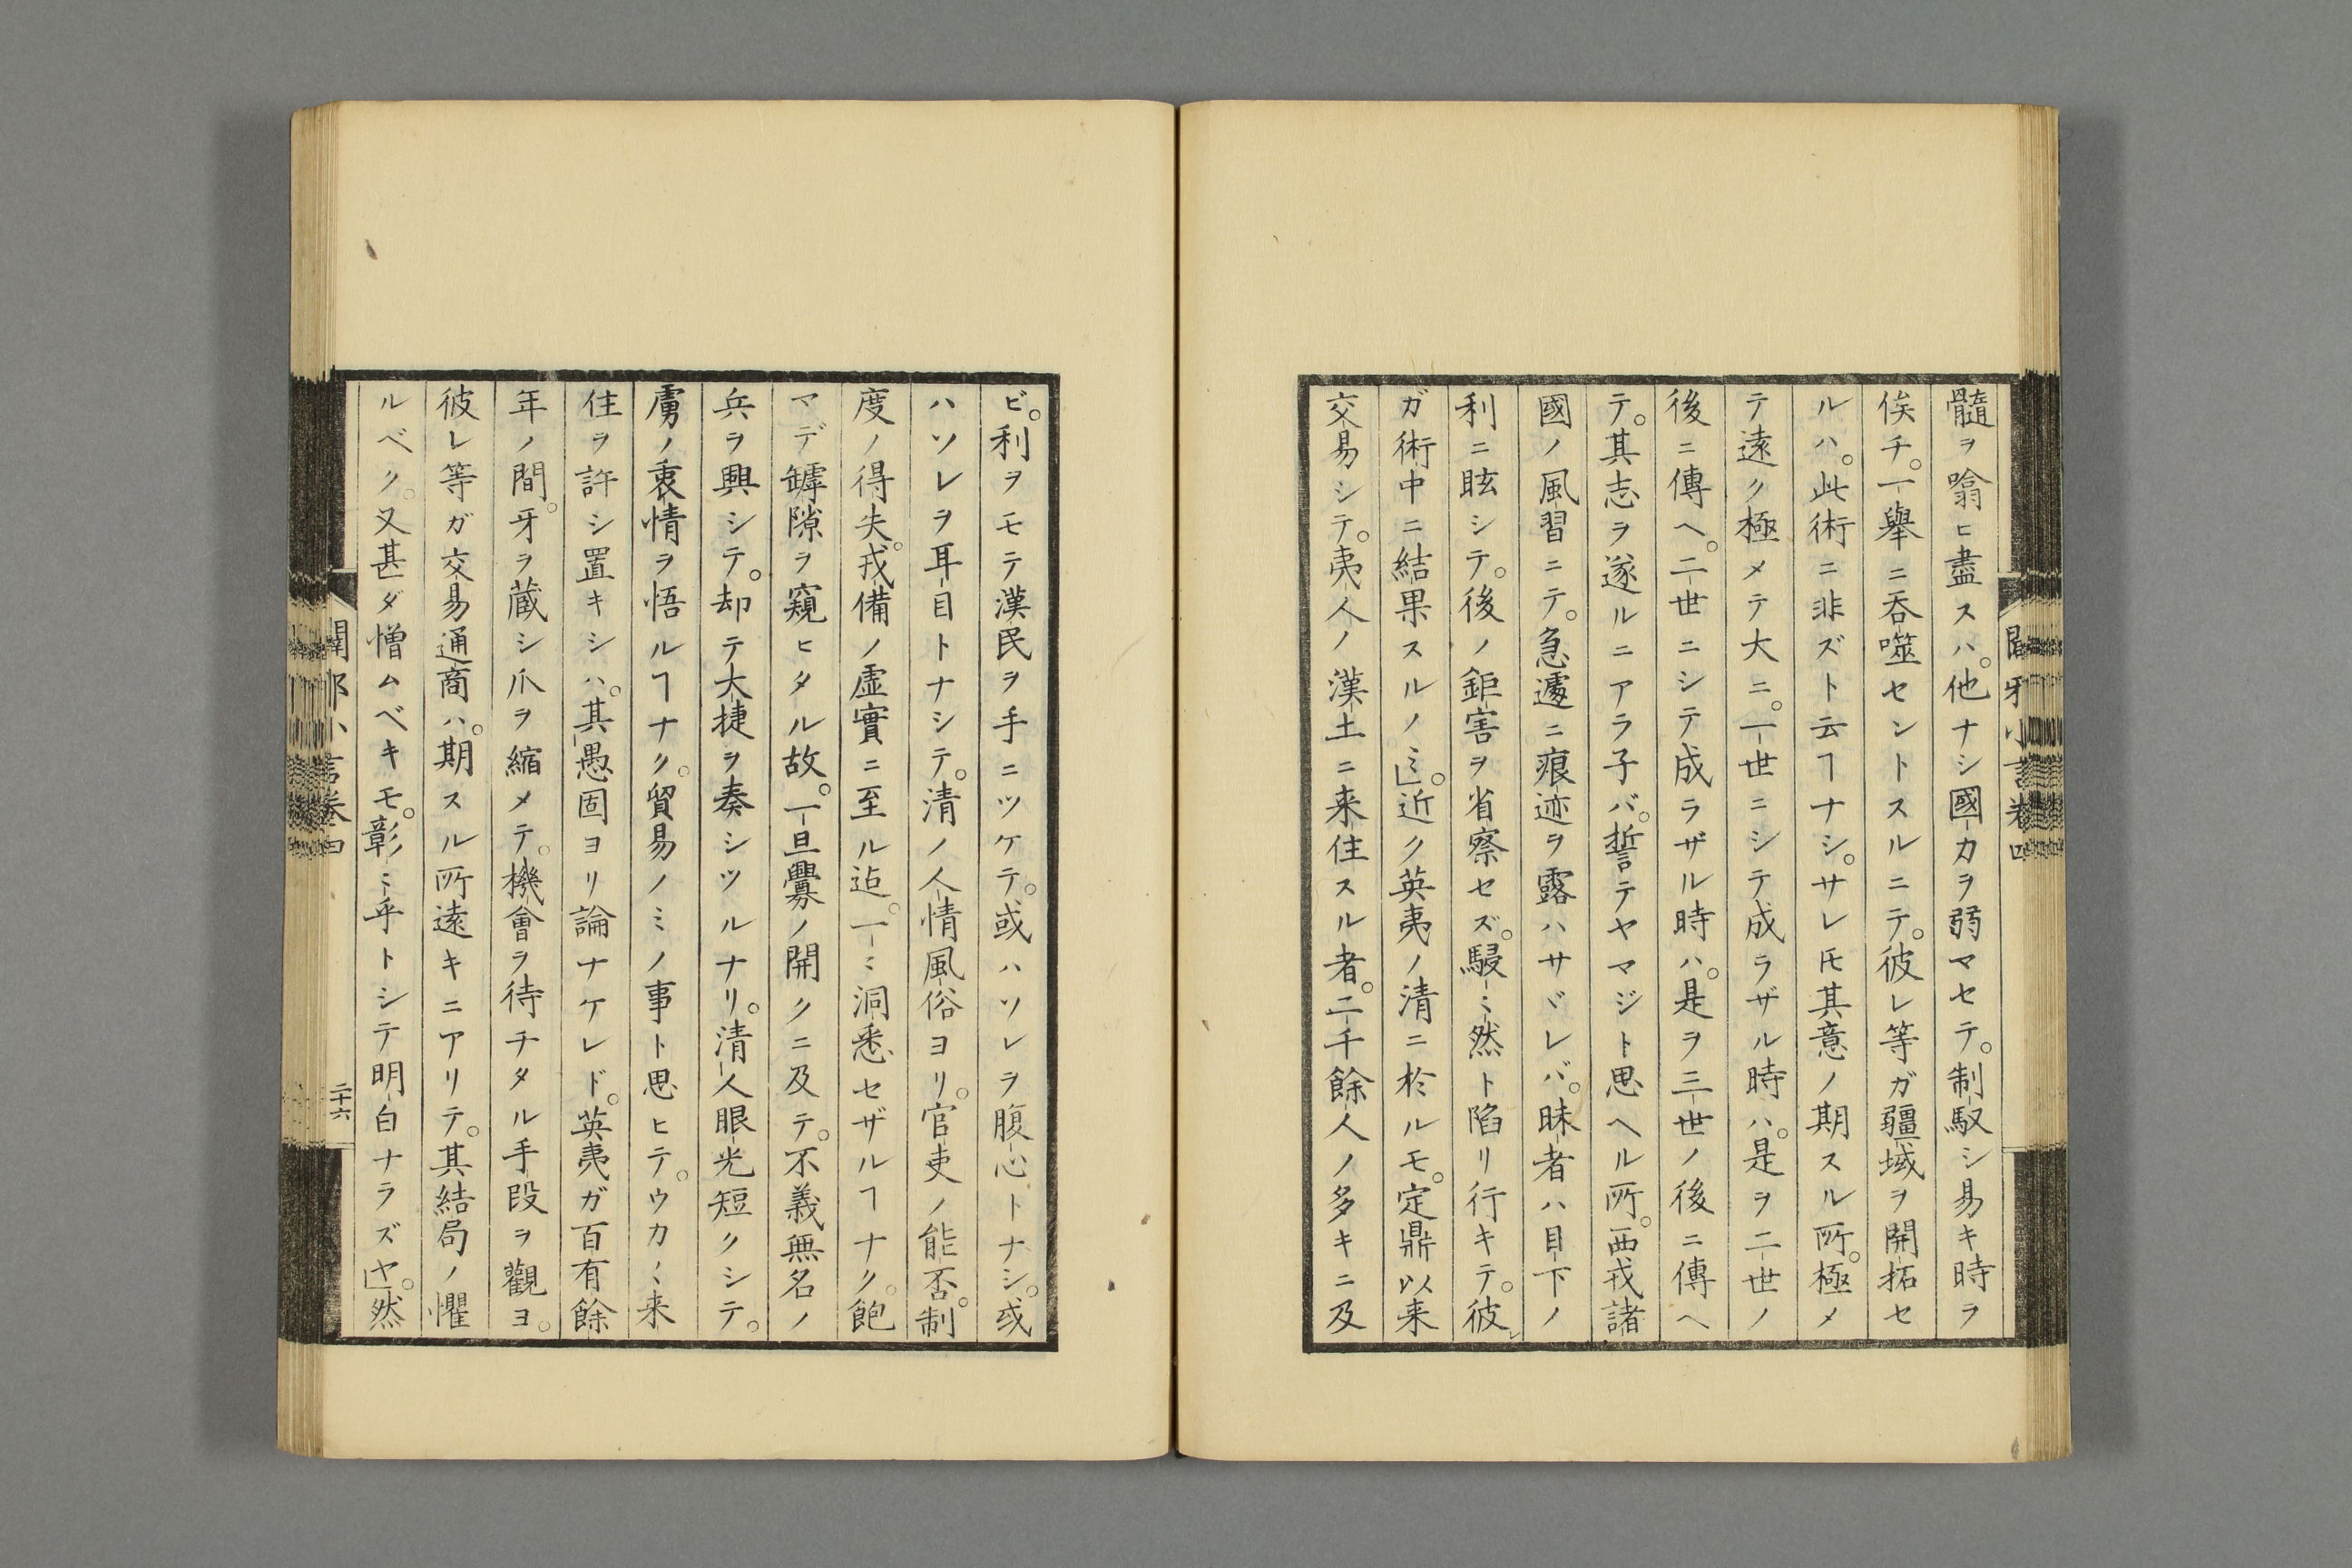 髓ヲ噏ヒ盡スハ。他ナシ國力ヲ弱マセテ。制馭シ易キ時ヲ
俟チ。一舉ニ呑噬セントスルニテ。彼レ等ガ疆域ヲ開拓セ
ルハ。此術ニ非ズト云ヿナシ。サレ𪜈其意ノ期スル所。極メ
テ遠ク極メテ大ニ。一世ニシテ成ラザル時ハ。是ヲ二世ノ
後ニ傳ヘ。二世ニシテ成ラザル時ハ。是ヲ三世ノ後ニ傳ヘ
テ。其志ヲ遂ルニアラ子バ。誓テヤマジト思ヘル所。西戎諸
國ノ風習ニテ。急遽ニ痕迹ヲ露ハサヾレバ。昧者ハ目下ノ
利ニ眩シテ。後ノ鉅害ヲ省察セズ。駸ミ然ト陷リ行キテ。彼
ガ術中ニ結果スルノミ」。近ク英夷ノ清ニ於ルモ。定鼎以来
交易シテ。夷人ノ漢土ニ来住スル者。二千餘人ノ多キニ及
ビ。利ヲモテ漢民ヲ手ニツケテ。或ハソレヲ腹心トナシ。或
ハソレヲ耳目トナシテ。清ノ人情風俗ヨリ。官吏ノ能否。制
度ノ得失。戎備ノ虚實ニ至ル迠。一ミ洞悉セザルヿナク。飽
マデ罅隙ヲ窺ヒタル故。一旦釁ノ開クニ及テ。不義無名ノ
兵ヲ興シテ。却テ大捷ヲ奏シツルナリ。清人眼光短クシテ。
虜ノ衷情ヲ悟ルヿナク。貿易ノミノ事ト思ヒテ。ウカ〱来
住ヲ許シ置キシハ。其愚固ヨリ論ナケレド。英夷ガ百有餘
年ノ間。牙ヲ蔵シ爪ヲ縮メテ。機會ヲ待チタル手段ヲ觀ヨ。
彼レ等ガ交易通商ハ。期スル所遠キニアリテ。其結局ノ懼
ルベク。又甚ダ憎ムベキモ。彰ミ乎トシテ明白ナラズヤ」。然
闢邪小言卷四
二十六